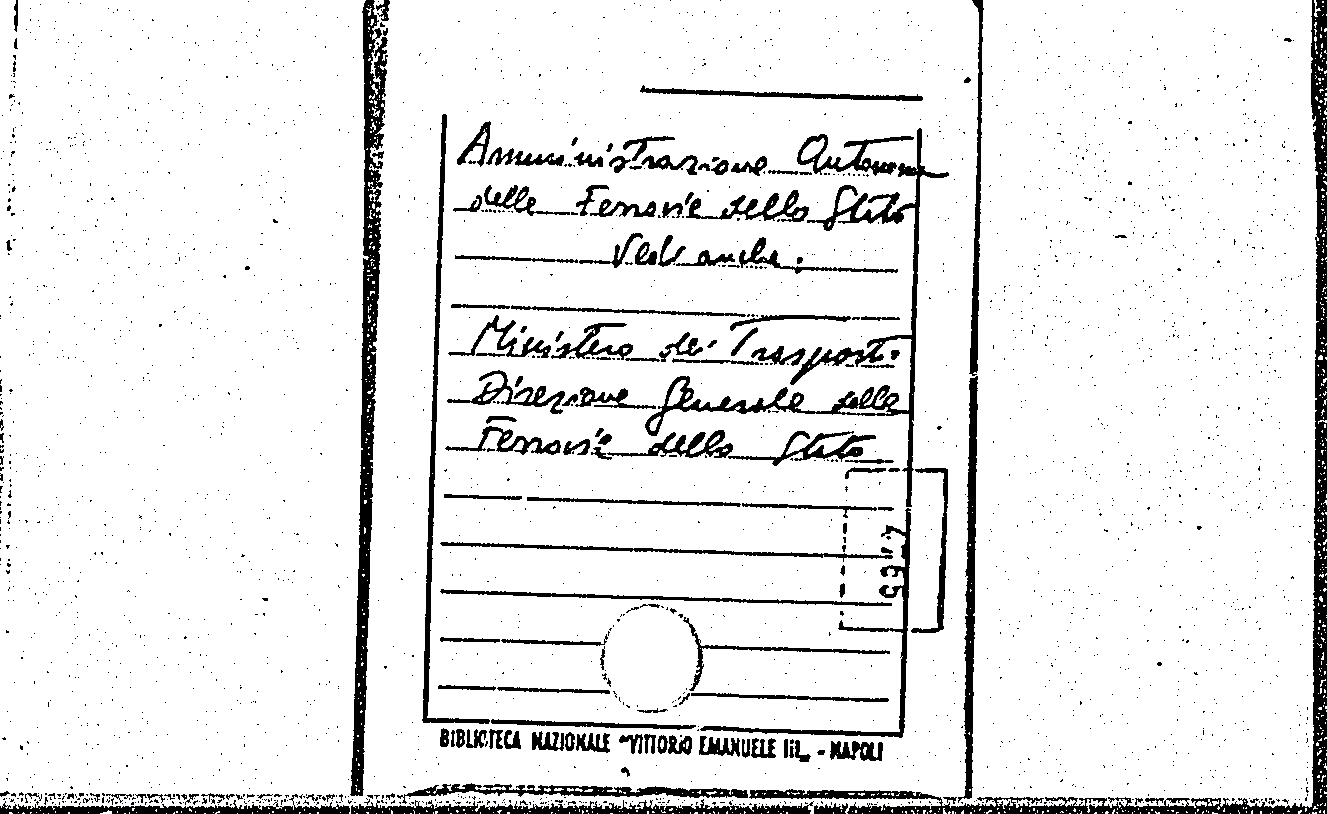 Amministrazione Autonoma
delle Ferrovie dello Stato
Vedi anche:
Ministero dei Trasporti
Direzione Generale delle
Ferrovie dello Stato
BIBLIOTECA NAZIONALE "VITTORIO EMANUELE III„ - NAPOLI